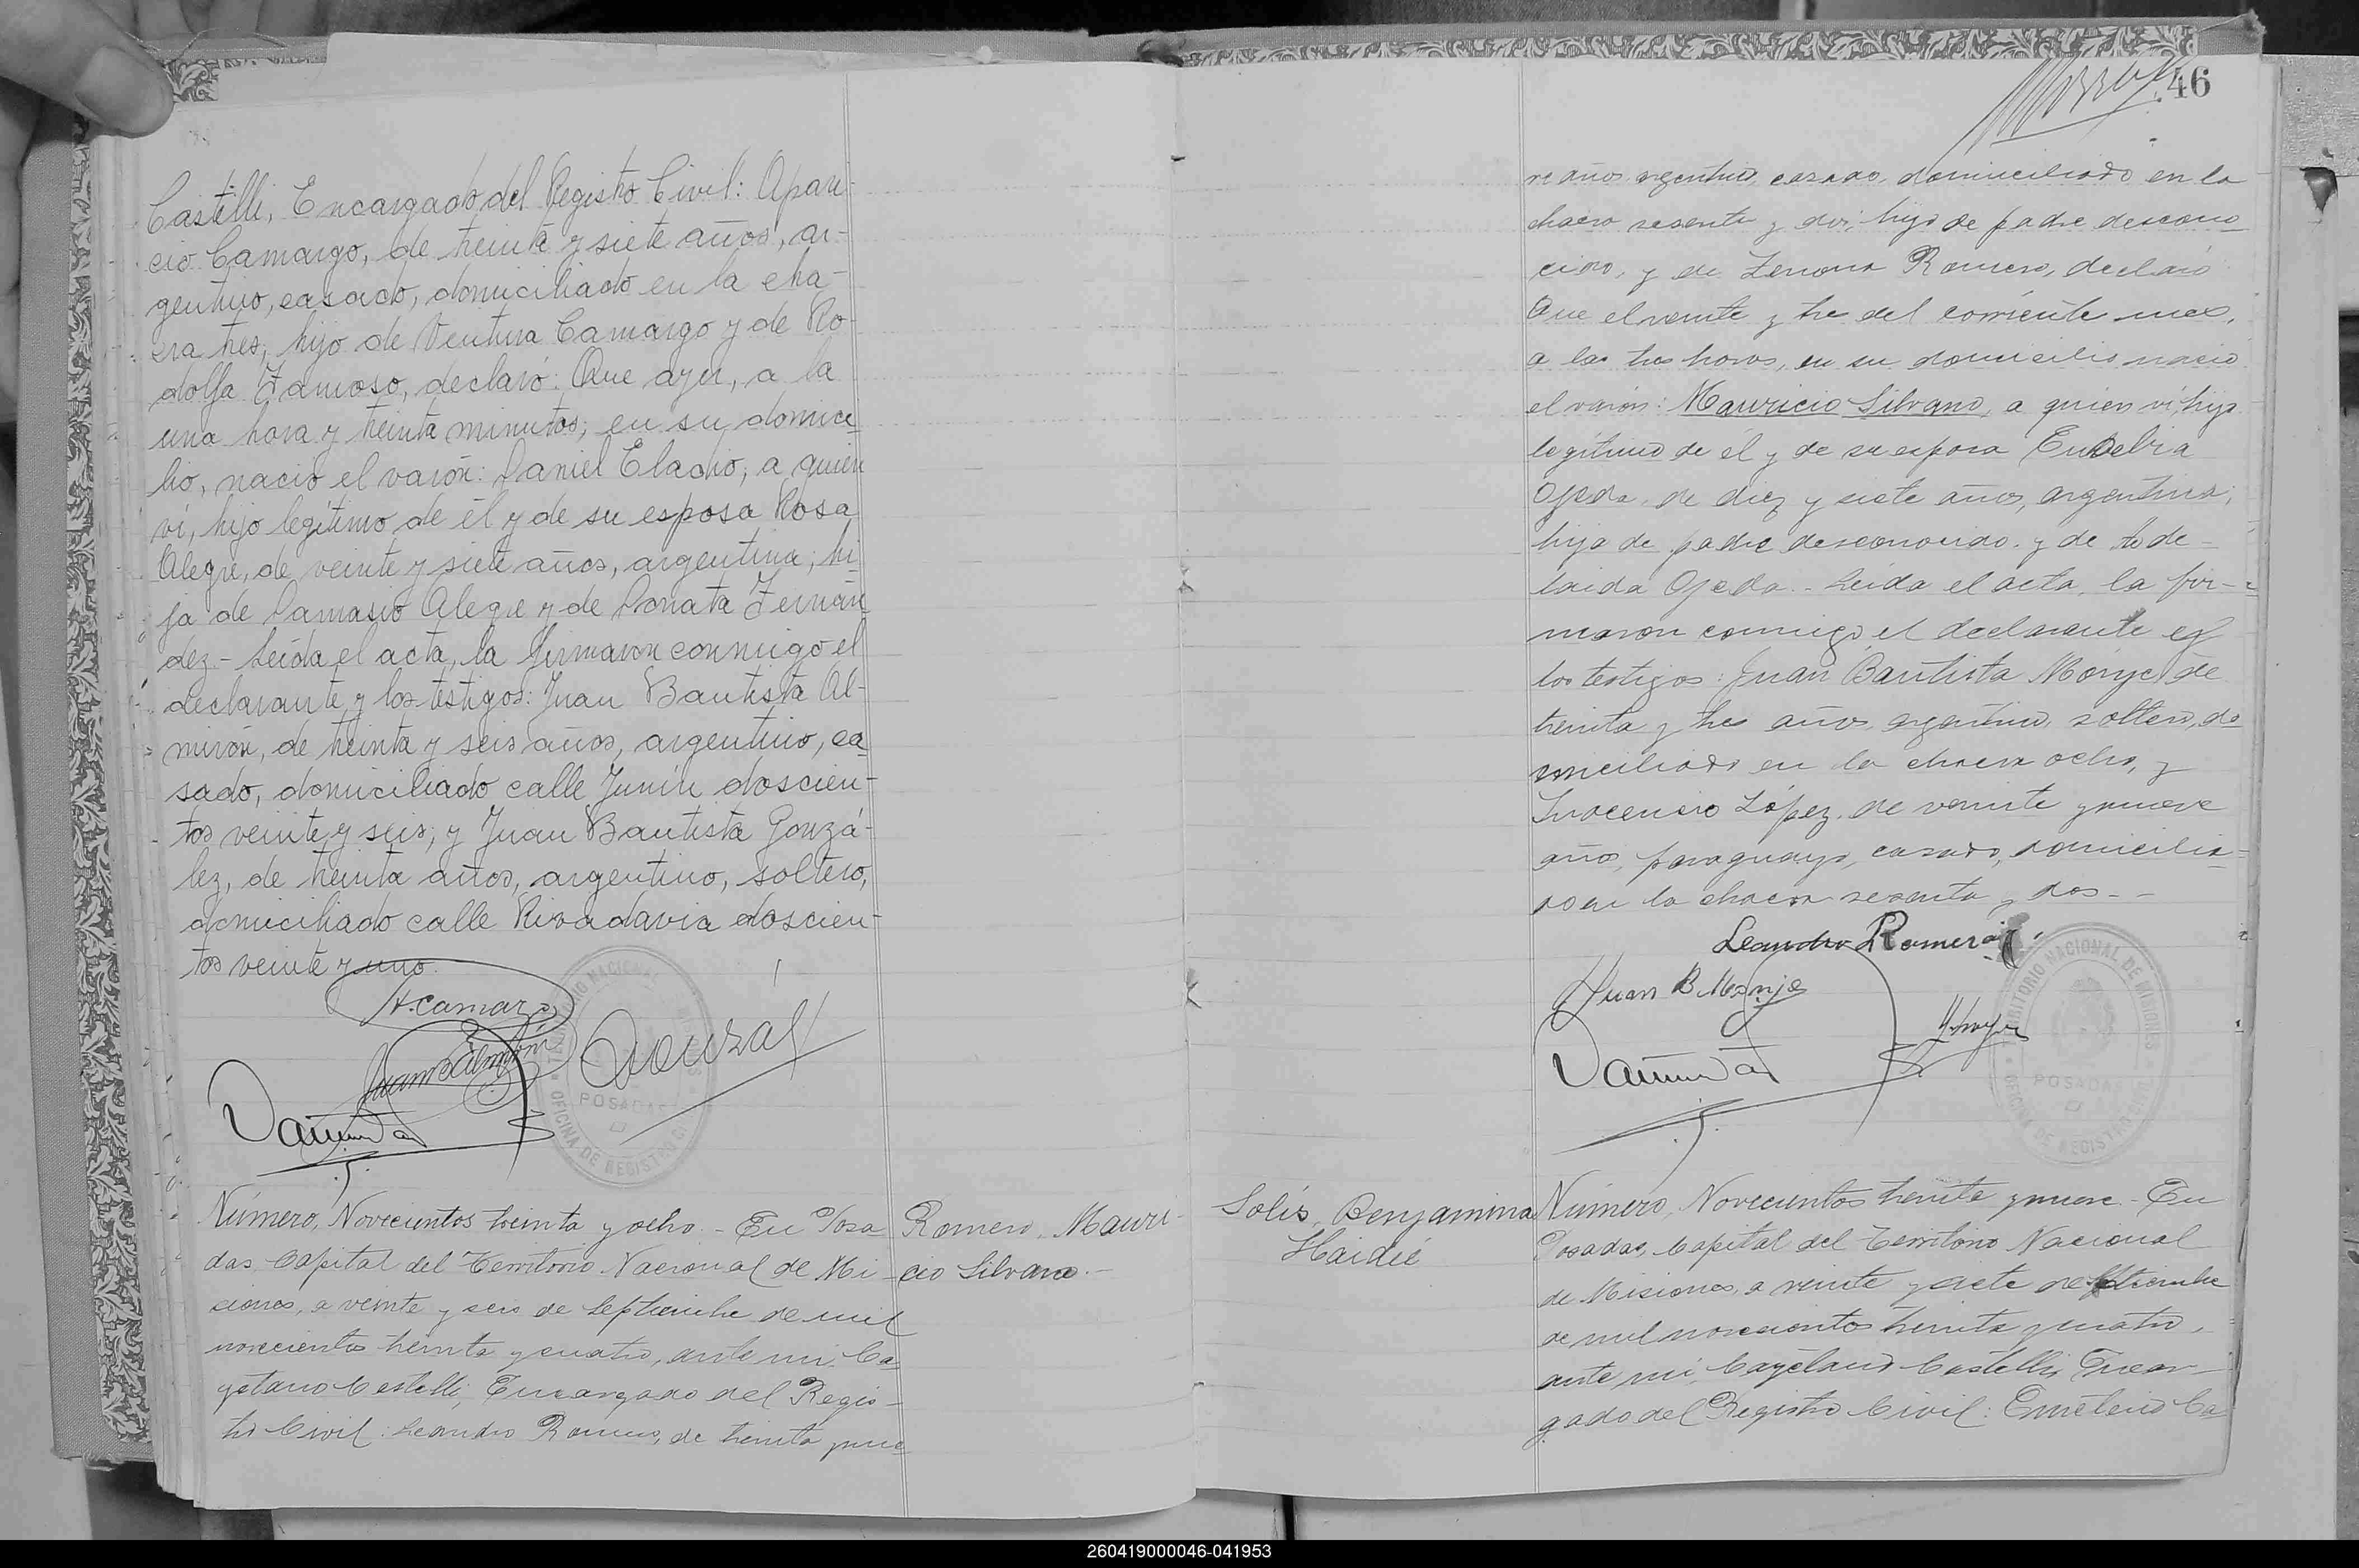 Castelli, Encargado del Registro Civil: Apari-
cio Camargo, de treinta y siete años, ar-
gentino, casado, domiciliado en la cha-
cra tres, hijo de Ventura Camargo y de Ro-
dolfa Famoso, declaró: Que ayer, a la
una hora y treinta minutos, en su domici-
lio, nació el varón: Daniel Eladio, a quien
ví, hijo legítimo de él y de su esposa Rosa
Alegre, de veinte y siete años, argentina; hi-
ja de Damasio Alegre y de Donata Fernán-
dez - Leída el acta, la firmaron conmigo el
declarante y los testigos: Juan Bautista Al-
mirón, de treinta y seis años, argentino, ca-
sado, domiciliado calle Junín doscien-
tos veinte y seis; y Juan Bautista Gonzá-
lez, de treinta años, argentino, soltero,
domiciliado calle Rivadavia doscien-
tos veinte y uno.
A. Camargo
Juan B Almirón
Gonzal
TERRITORIO NACIONAL DE MISIONES
POSADAS
OFICINA DE REGISTRO CIVIL
Número, Novecientos treinta y ocho. - En Posa-
das Capital del Territorio Nacional de Mi-
siones, a veinte y seis de Septiembre de mil
novecientos treinta y cuatro, ante mi, Ca-
yetano Castelli, Encargado del Regis-
tro Civil: Leandro Romero, de treinta y nue-
Romero, Mauri-
cio Silvano. -
46
ve años argentino, casado, domiciliado en la
chacra sesenta y dos; hijo de padre descono-
cido, y de Zenona Romero, declaró
Que el veinte y tres del corriente mes,
a las tres horas, en su domicilio nació
el varón: Mauricio Silvano, a quien ví, hijo
legítimo de él y de su esposa Eudelia
Ojeda, de diez y siete años, argentina;
hija de padre desconocido y de Ade-
laida Ojeda. - Leída el acta, la fir-
maron conmigo el declarante y
los testigos: Juan Bautista Monje, de
treinta y tres años, argentino, soltero, do-
miciliado en la chacra ocho, y
Inocencio López, de veinte y nueve
años, paraguayo, casado, domicilia-
do en la chacra sesenta y dos - -
Leandro Romero
Juan B Monje
TERRITORIO NACIONAL DE MISIONES
POSADAS
OFICINA DE REGISTRO CIVIL
Solís, Benjamina
Haideé
Número, Novecientos treinta y nueve - En
Posadas, Capital del Territorio Nacional
de Misiones, a veinte y siete de Septiembre
de mil novecientos treinta y cuatro,
ante mi, Cayetano Castelli, Encar-
gado del Registro Civil: Emeterio Ca
260419000046-041953